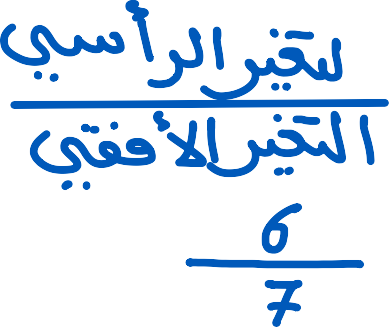 لتغير الرأسي
التغير الأفقي
6
7